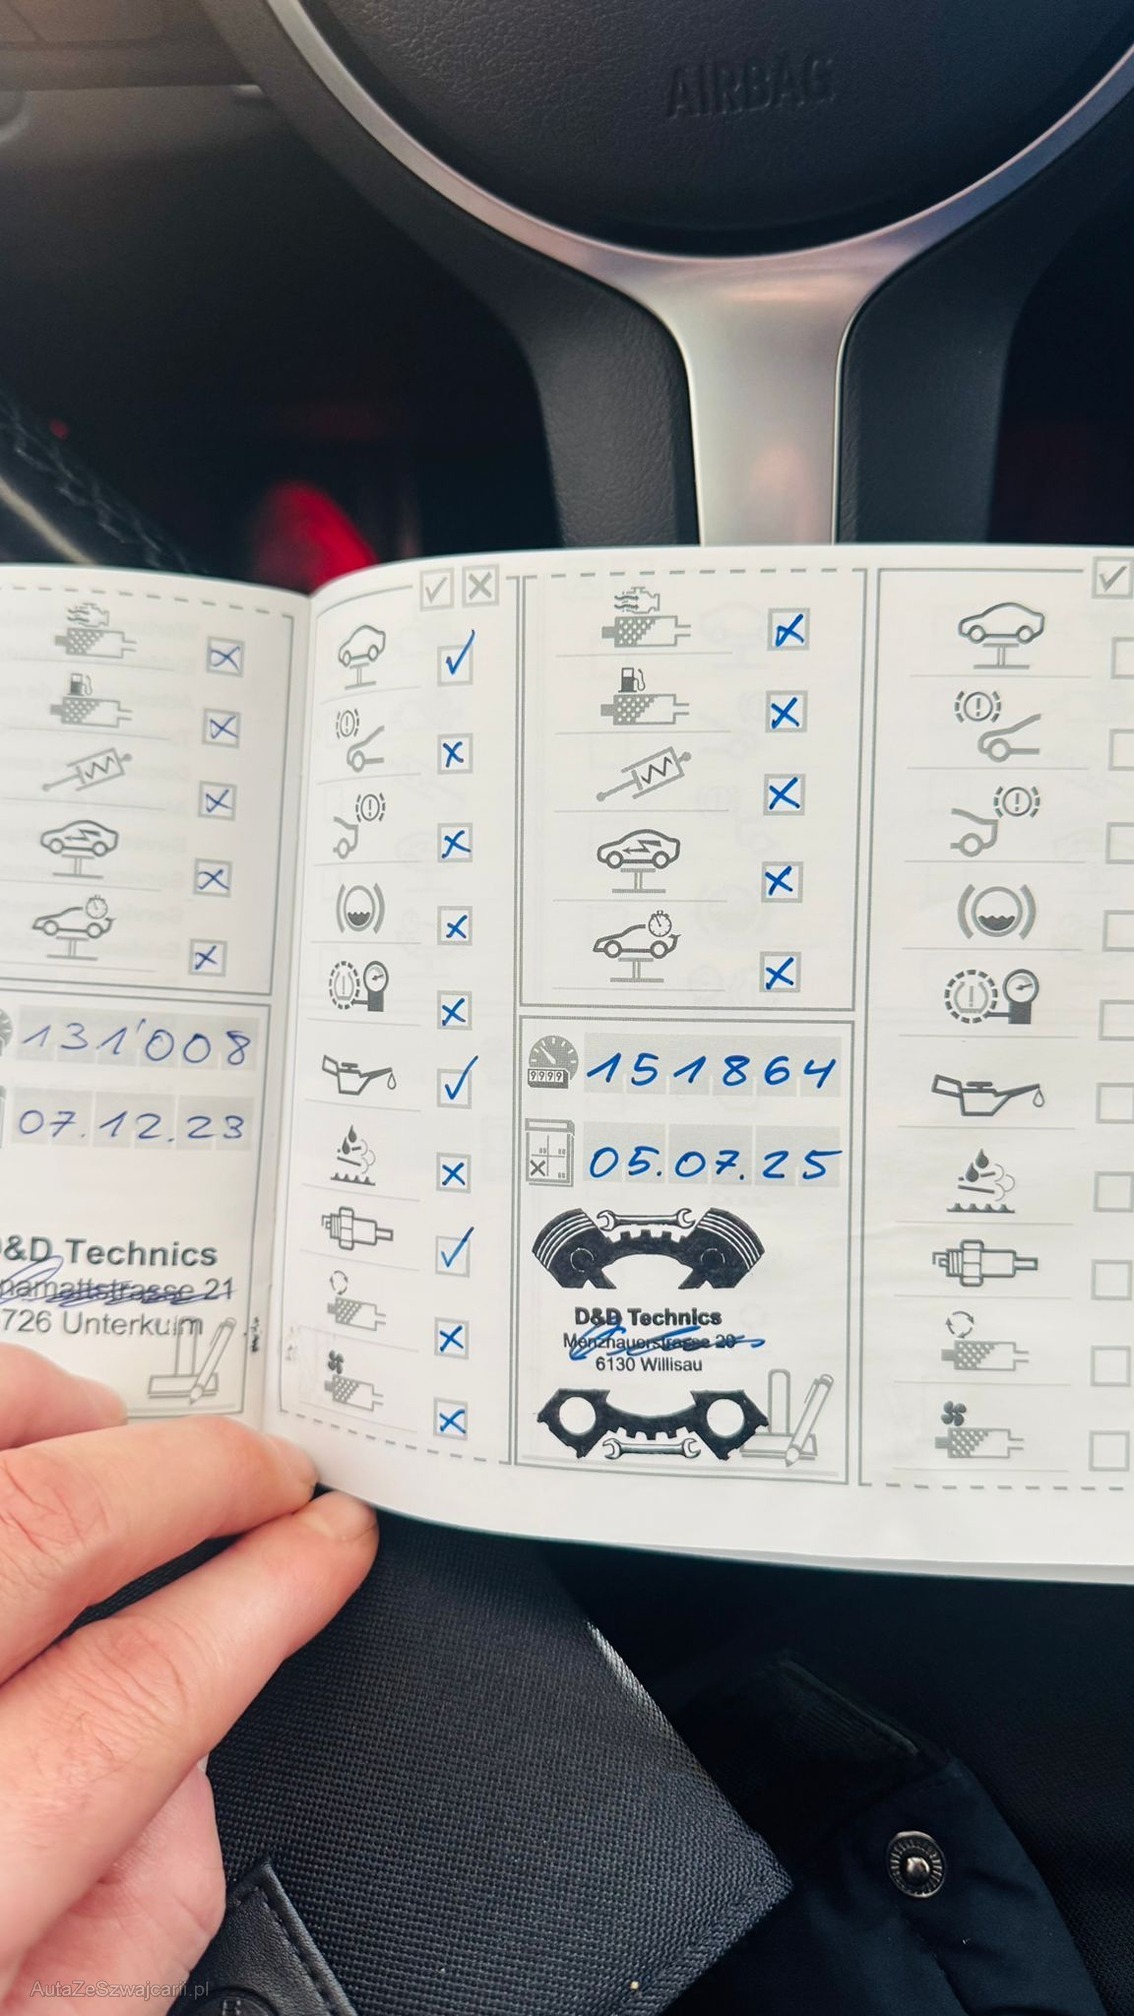 AIRBAG
131'008
07.12.23
D&D Technics
21
Unterkulm
9999
151864
05.07.25
D&D Technics
Menzhauerstrasse 20
6130 Willisau
AutaZeSzwajcarii.pl